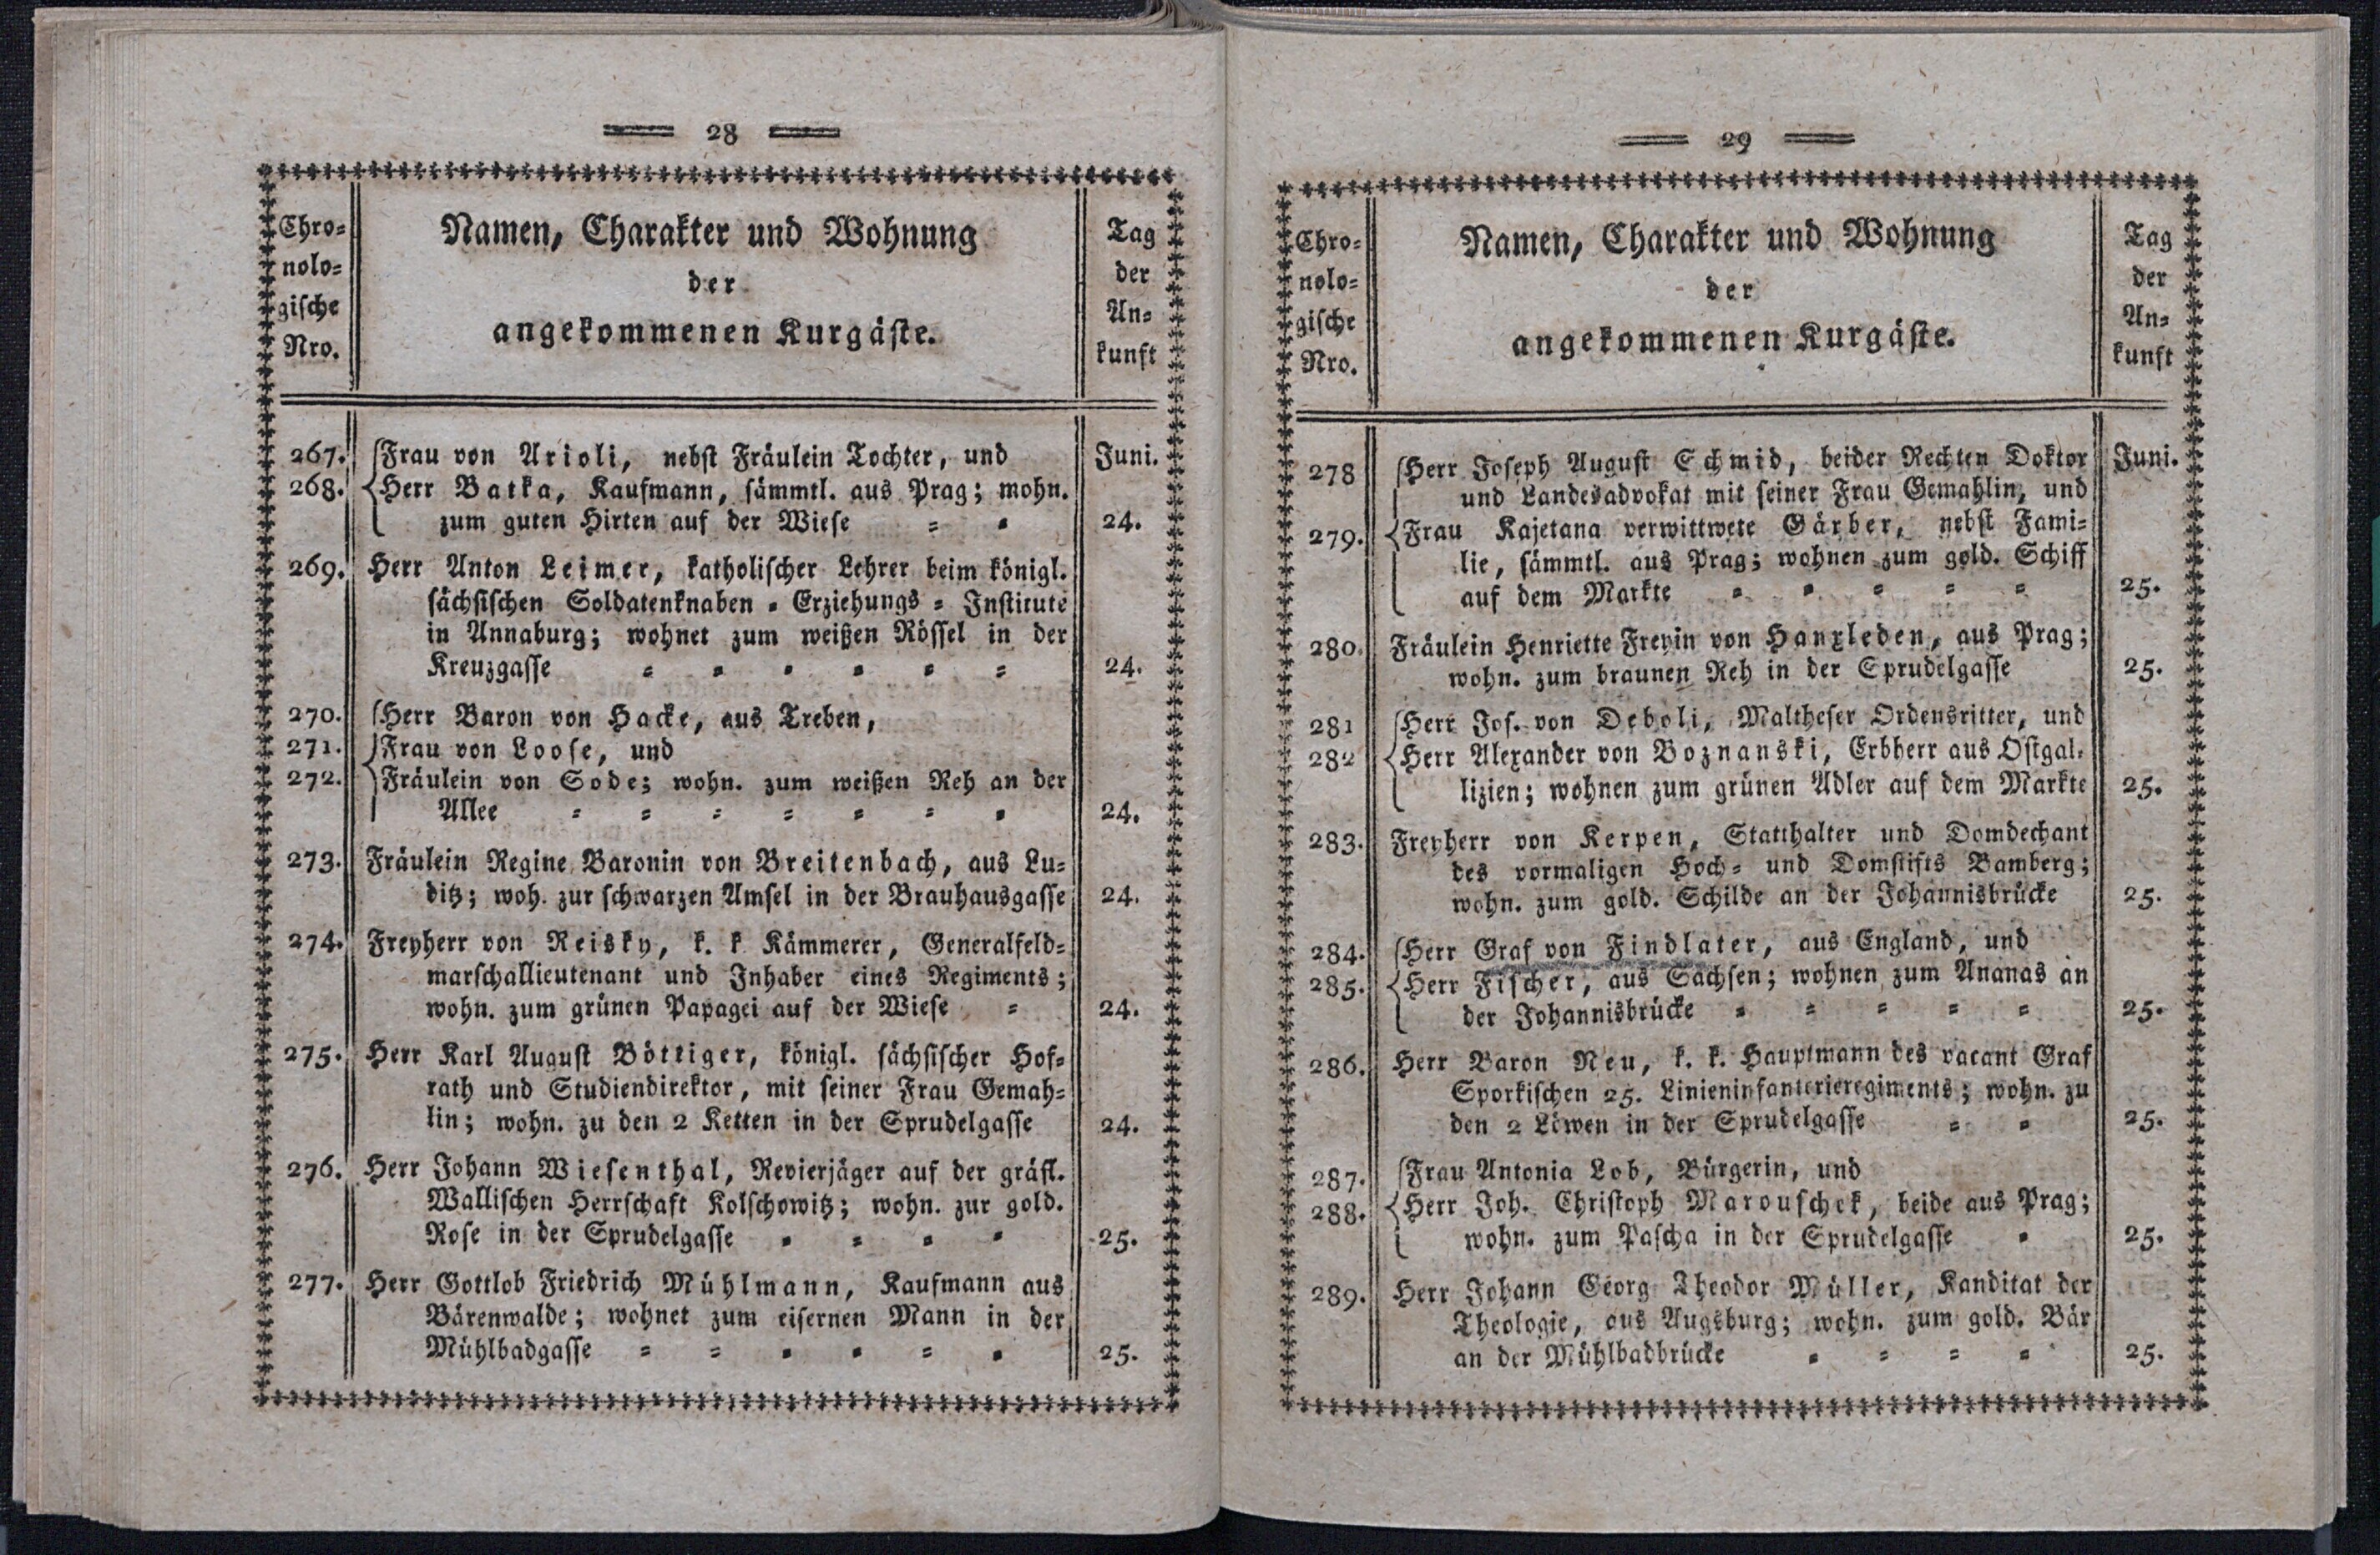 28
Chro-
nolo-
gische
Nro.
Namen, Charakter und Wohnung
der
angekommenen Kurgäste.
Tag
der
An-
kunft
267. Frau von Arioli, nebst Fräulein Tochter, und Juni.
268. Herr Batka, Kaufmann, sämmtl. aus Prag; mohn.
zum guten Hirten auf der Wiese = = 24.
269. Herr Anton Leimer, katholischer Lehrer beim königl.
sächsischen Soldatenknaben = Erziehungs = Institute
in Annaburg; wohnet zum weißen Rössel in der
Kreuzgasse = = = = = = 24.
270. Herr Baron von Hacke, aus Treben,
271. Frau von Loose, und
272. Fräulein von Sode; wohn. zum weißen Reh an der
Allee = = = = = = = 24.
273. Fräulein Regine Baronin von Breitenbach, aus Lu-
ditz; woh. zur schwarzen Amsel in der Brauhausgasse 24.
274. Freyherr von Reisky, k. k Kämmerer, Generalfeld-
marschallieutenant und Inhaber eines Regiments;
wohn. zum grünen Papagei auf der Wiese = 24.
275. Herr Karl August Böttiger, königl. sächsischer Hof-
rath und Studiendirektor, mit seiner Frau Gemah-
lin; wohn. zu den 2 Ketten in der Sprudelgasse 24.
276. Herr Johann Wiesenthal, Revierjäger auf der gräfl.
Wallischen Herrschaft Kolschowitz; wohn. zur gold.
Rose in der Sprudelgasse = = = = 25.
277. Herr Gottlob Friedrich Mühlmann, Kaufmann aus
Bärenwalde; wohnet zum eisernen Mann in der
Mühlbadgasse = = = = = = 25.
29
Chro-
nolo-
gische
Nro.
Namen, Charakter und Wohnung
der
angekommenen Kurgäste.
Tag
der
An-
kunft
278 Herr Joseph August Schmid, beider Rechten Doktor Juni.
und Landesadvokat mit seiner Frau Gemahlin, und
279. Frau Kajetana verwittwete Gärber, nebst Fami-
lie, sämmtl. aus Prag; wohnen zum gold. Schiff
auf dem Markte = = = = = 25.
280. Fräulein Henriette Freyin von Hanxleden, aus Prag;
wohn. zum braunen Reh in der Sprudelgasse 25.
281 Herr Jos. von Deboli, Maltheser Ordensritter, und
282 Herr Alexander von Boznanski, Erbherr aus Ostgal-
lizien; wohnen zum grünen Adler auf dem Markte 25.
283. Freyherr von Kerpen, Statthalter und Domdechant
des vormaligen Hoch- und Domstifts Bamberg;
wohn. zum gold. Schilde an der Johannisbrücke 25.
284. Herr Graf von Findlater, aus England, und
285. Herr Fischer, aus Sachsen; wohnen zum Ananas an
der Johannisbrücke = = = = = 25.
286. Herr Baron Neu, k. k. Hauptmann des vacant Graf
Sporkischen 25. Linieninfanterieregiments; wohn. zu
den 2 Löwen in der Sprudelgasse = = 25.
287. Frau Antonia Lob, Bürgerin, und
288. Herr Joh. Christoph Marouschek, beide aus Prag;
wohn. zum Pascha in der Sprudelgasse = 25.
289. Herr Johann Georg Theodor Müller, Kanditat der
Theologie, aus Augsburg; wohn. zum gold. Bär
an der Mühlbadbrücke = = = = 25.